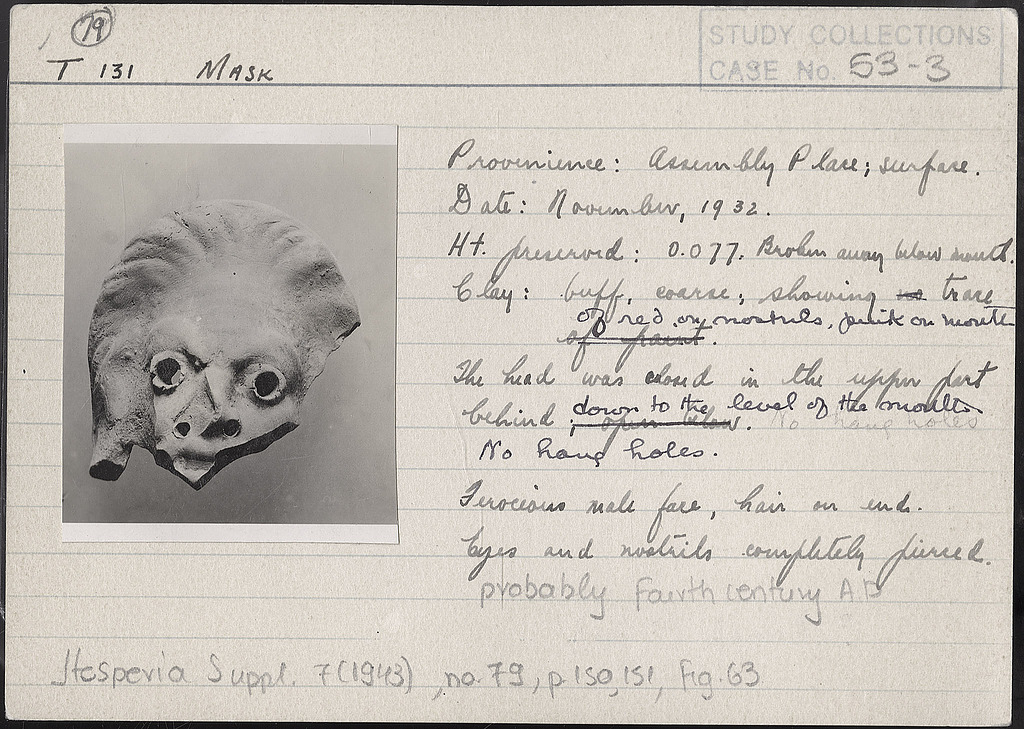 79
STUDY COLLECTIONS
CASE No. 53-3
T 131 MASK
Provenience: Assembly Place; surface.
Date: November, 1932.
Ht. preserved: 0.077. Broken away below mouth.
Clay: buff, coarse; showing no trace
of red on nostrils, pink on mouth
of paint.
The head was closed in the upper part
behind down to the level of the mouth
; open below. No hang holes
No hang holes.
Ferocious male face, hair on end.
Eyes and nostrils completely pierced.
probably Fourth century A.D
Hesperia Suppl. 7 (1943), no. 79, p. 150, 151, Fig. 63